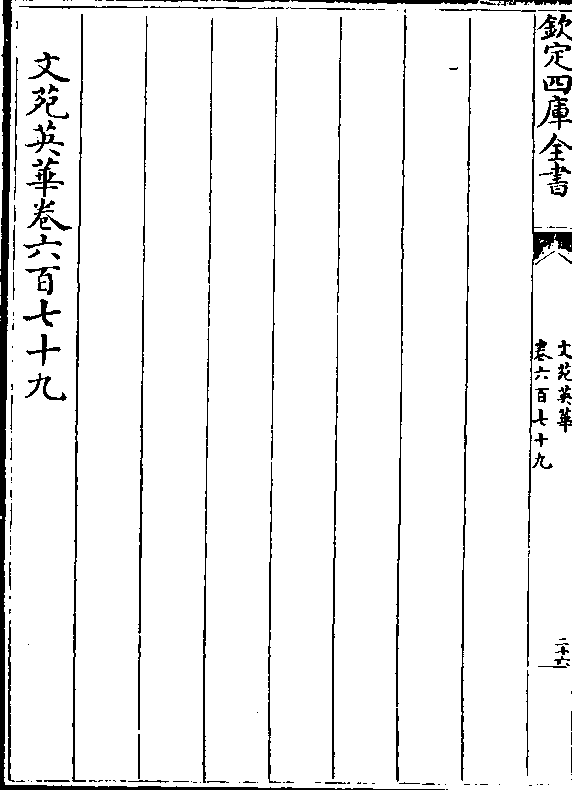 欽定四庫全書
文苑英華
卷六百七十九
二十六
文苑英華卷六百七十九